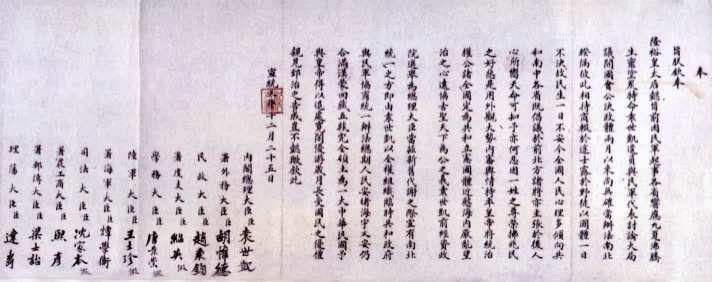 奉
旨朕欽奉
隆裕皇太后懿旨前因民軍起事各省響應九夏沸騰
生靈塗炭特命袁世凱遣員與民軍代表討論大局
議開國會公決政體兩月以來尚無確當辦法南北
暌隔彼此相持商輟於途士露於野徒以國體一日
不決故民生一日不安今全國人民心理多傾向共
和南中各省既倡議於前北方諸將亦主張於後人
心所嚮天命可知予亦何忍因一姓之尊榮拂兆民
之好惡是用外觀大勢內審輿情特率皇帝將統治
權公諸全國定為共和立憲國體近慰海內厭亂望
治之心遠協古聖天下為公之義袁世凱前經資政
院選舉為總理大臣當茲新舊代謝之際宜有南北
統一之方即由袁世凱以全權組織臨時共和政府
與民軍協商統一辦法總期人民安堵海宇乂安仍
合滿漢蒙回藏五族完全領土為一大中華民國予
與皇帝得以退處寬閒優游歲月長受國民之優禮
親見郅治之告成豈不懿歟欽此
宣統三年十二月二十五日
內閣總理大臣臣袁世凱
署外務大臣臣胡惟德
民政大臣臣趙秉鈞
署度支大臣臣紹英假
學務大臣臣唐景崇假
陸軍大臣臣王士珍假
署海軍大臣臣譚學衡
司法大臣臣沈家本假
署農工商大臣臣熙彥
署郵傳大臣臣梁士詒
理藩大臣臣達壽